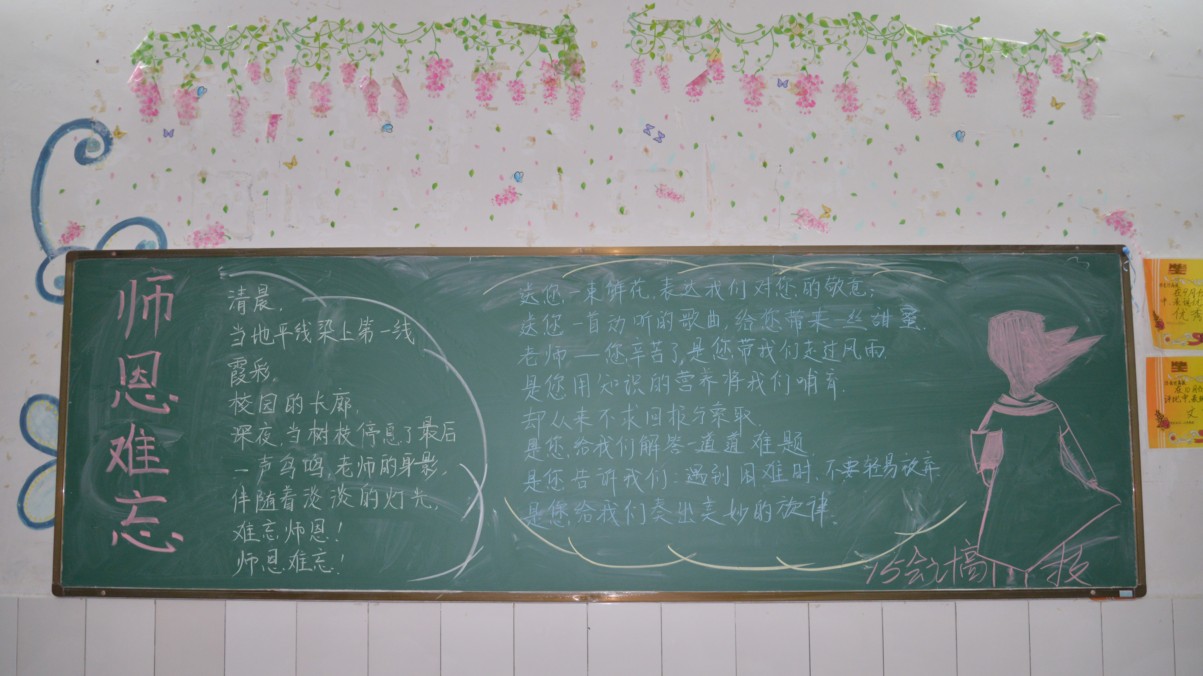 师恩难忘
清晨,
当地平线染上第一线
霞彩,
校园的长廊,
深夜,当树枝停息了最后
一声鸟鸣,老师的身影,
伴随着淡淡的灯光,
难忘师恩!
师恩难忘!
送您一束鲜花,表达我们对您的敬意;
送您一首动听的歌曲,给您带来一丝甜蜜.
老师——您辛苦了,是您带我们走过风雨,
是您用知识的营养将我们哺育,
却从来不求回报与索取.
是您,给我们解答一道道难题.
是您告诉我们:遇到困难时,不要轻易放弃
是您,给我们奏出美妙的旋律。
15会
优秀